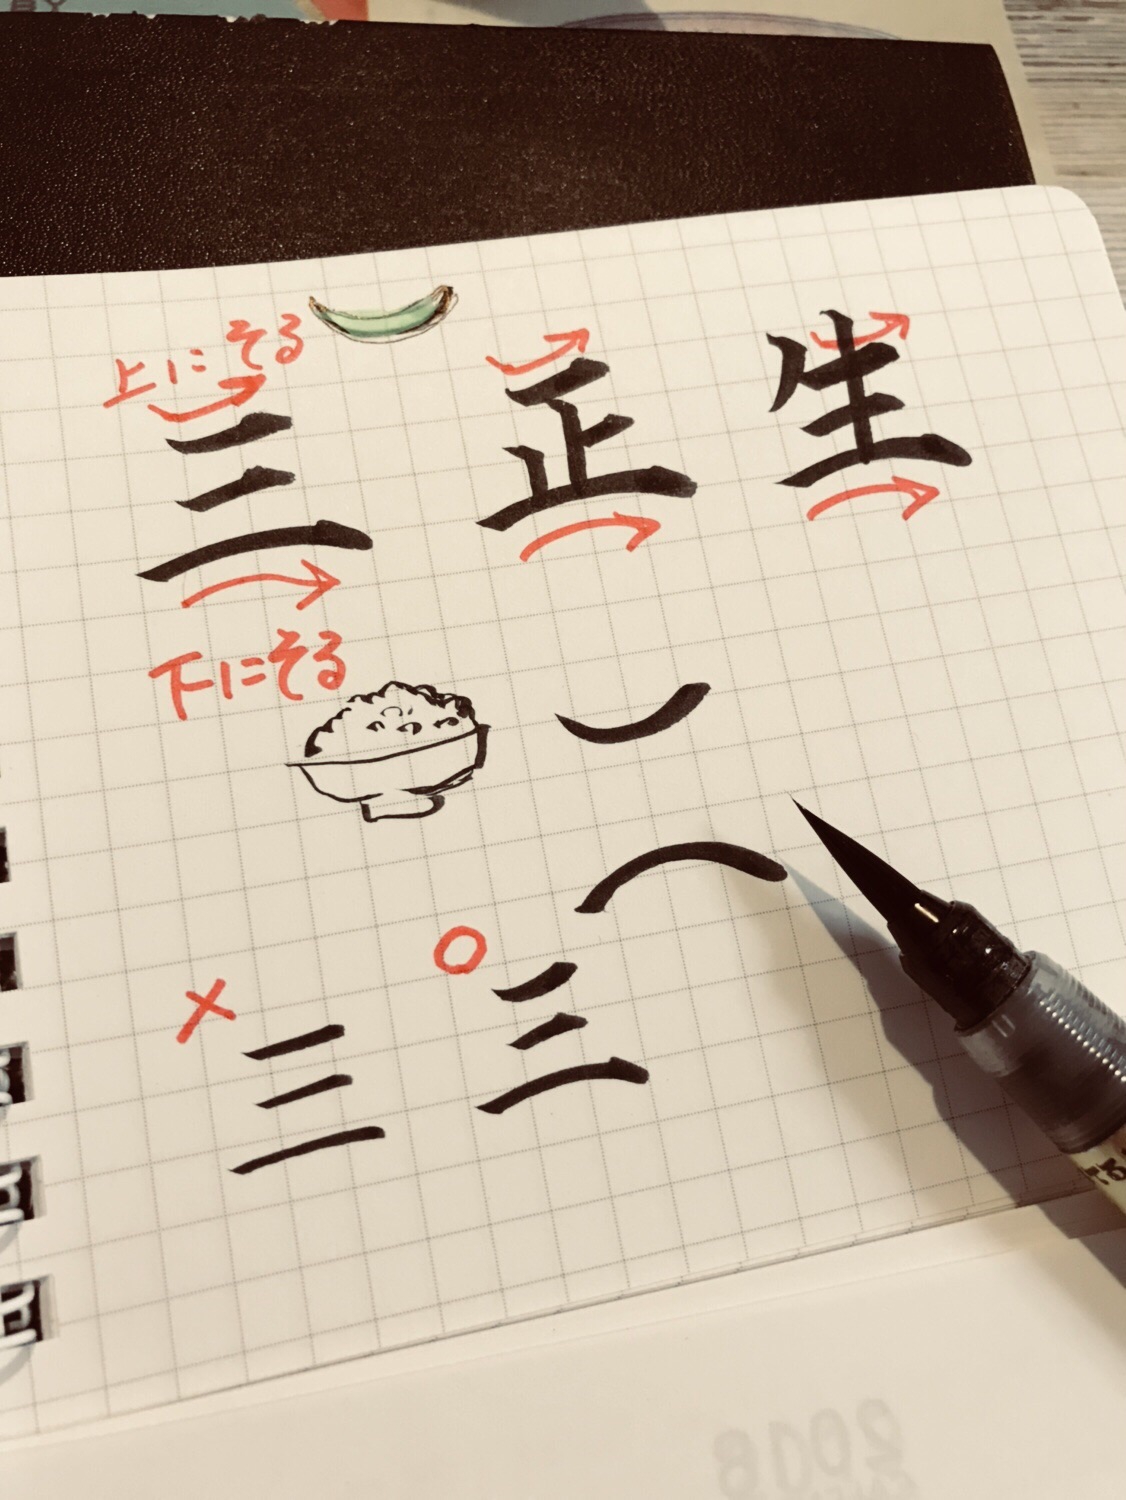 BY
上にそる
三 正 生
下にそる
× ○
三 三
2018